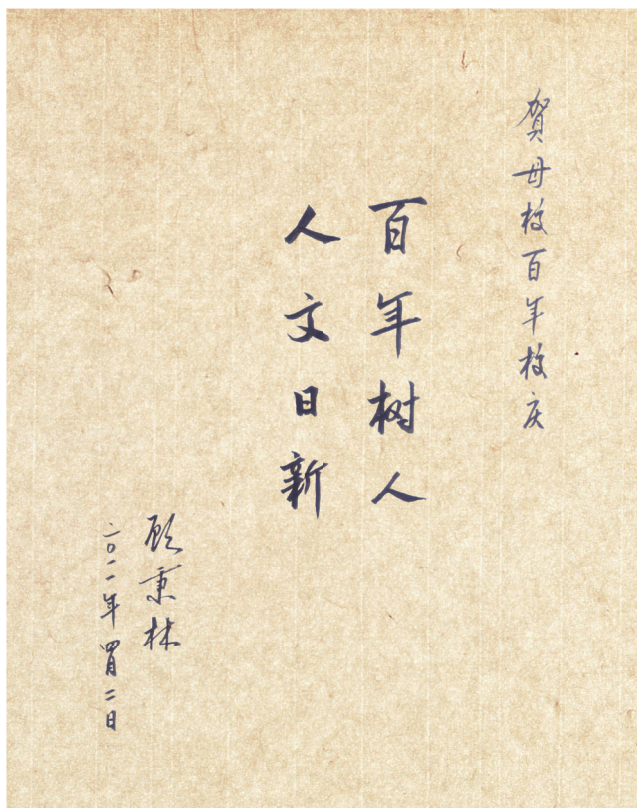 贺母校百年校庆
百年树人
人文日新
顾秉林
二〇一一年四月二日